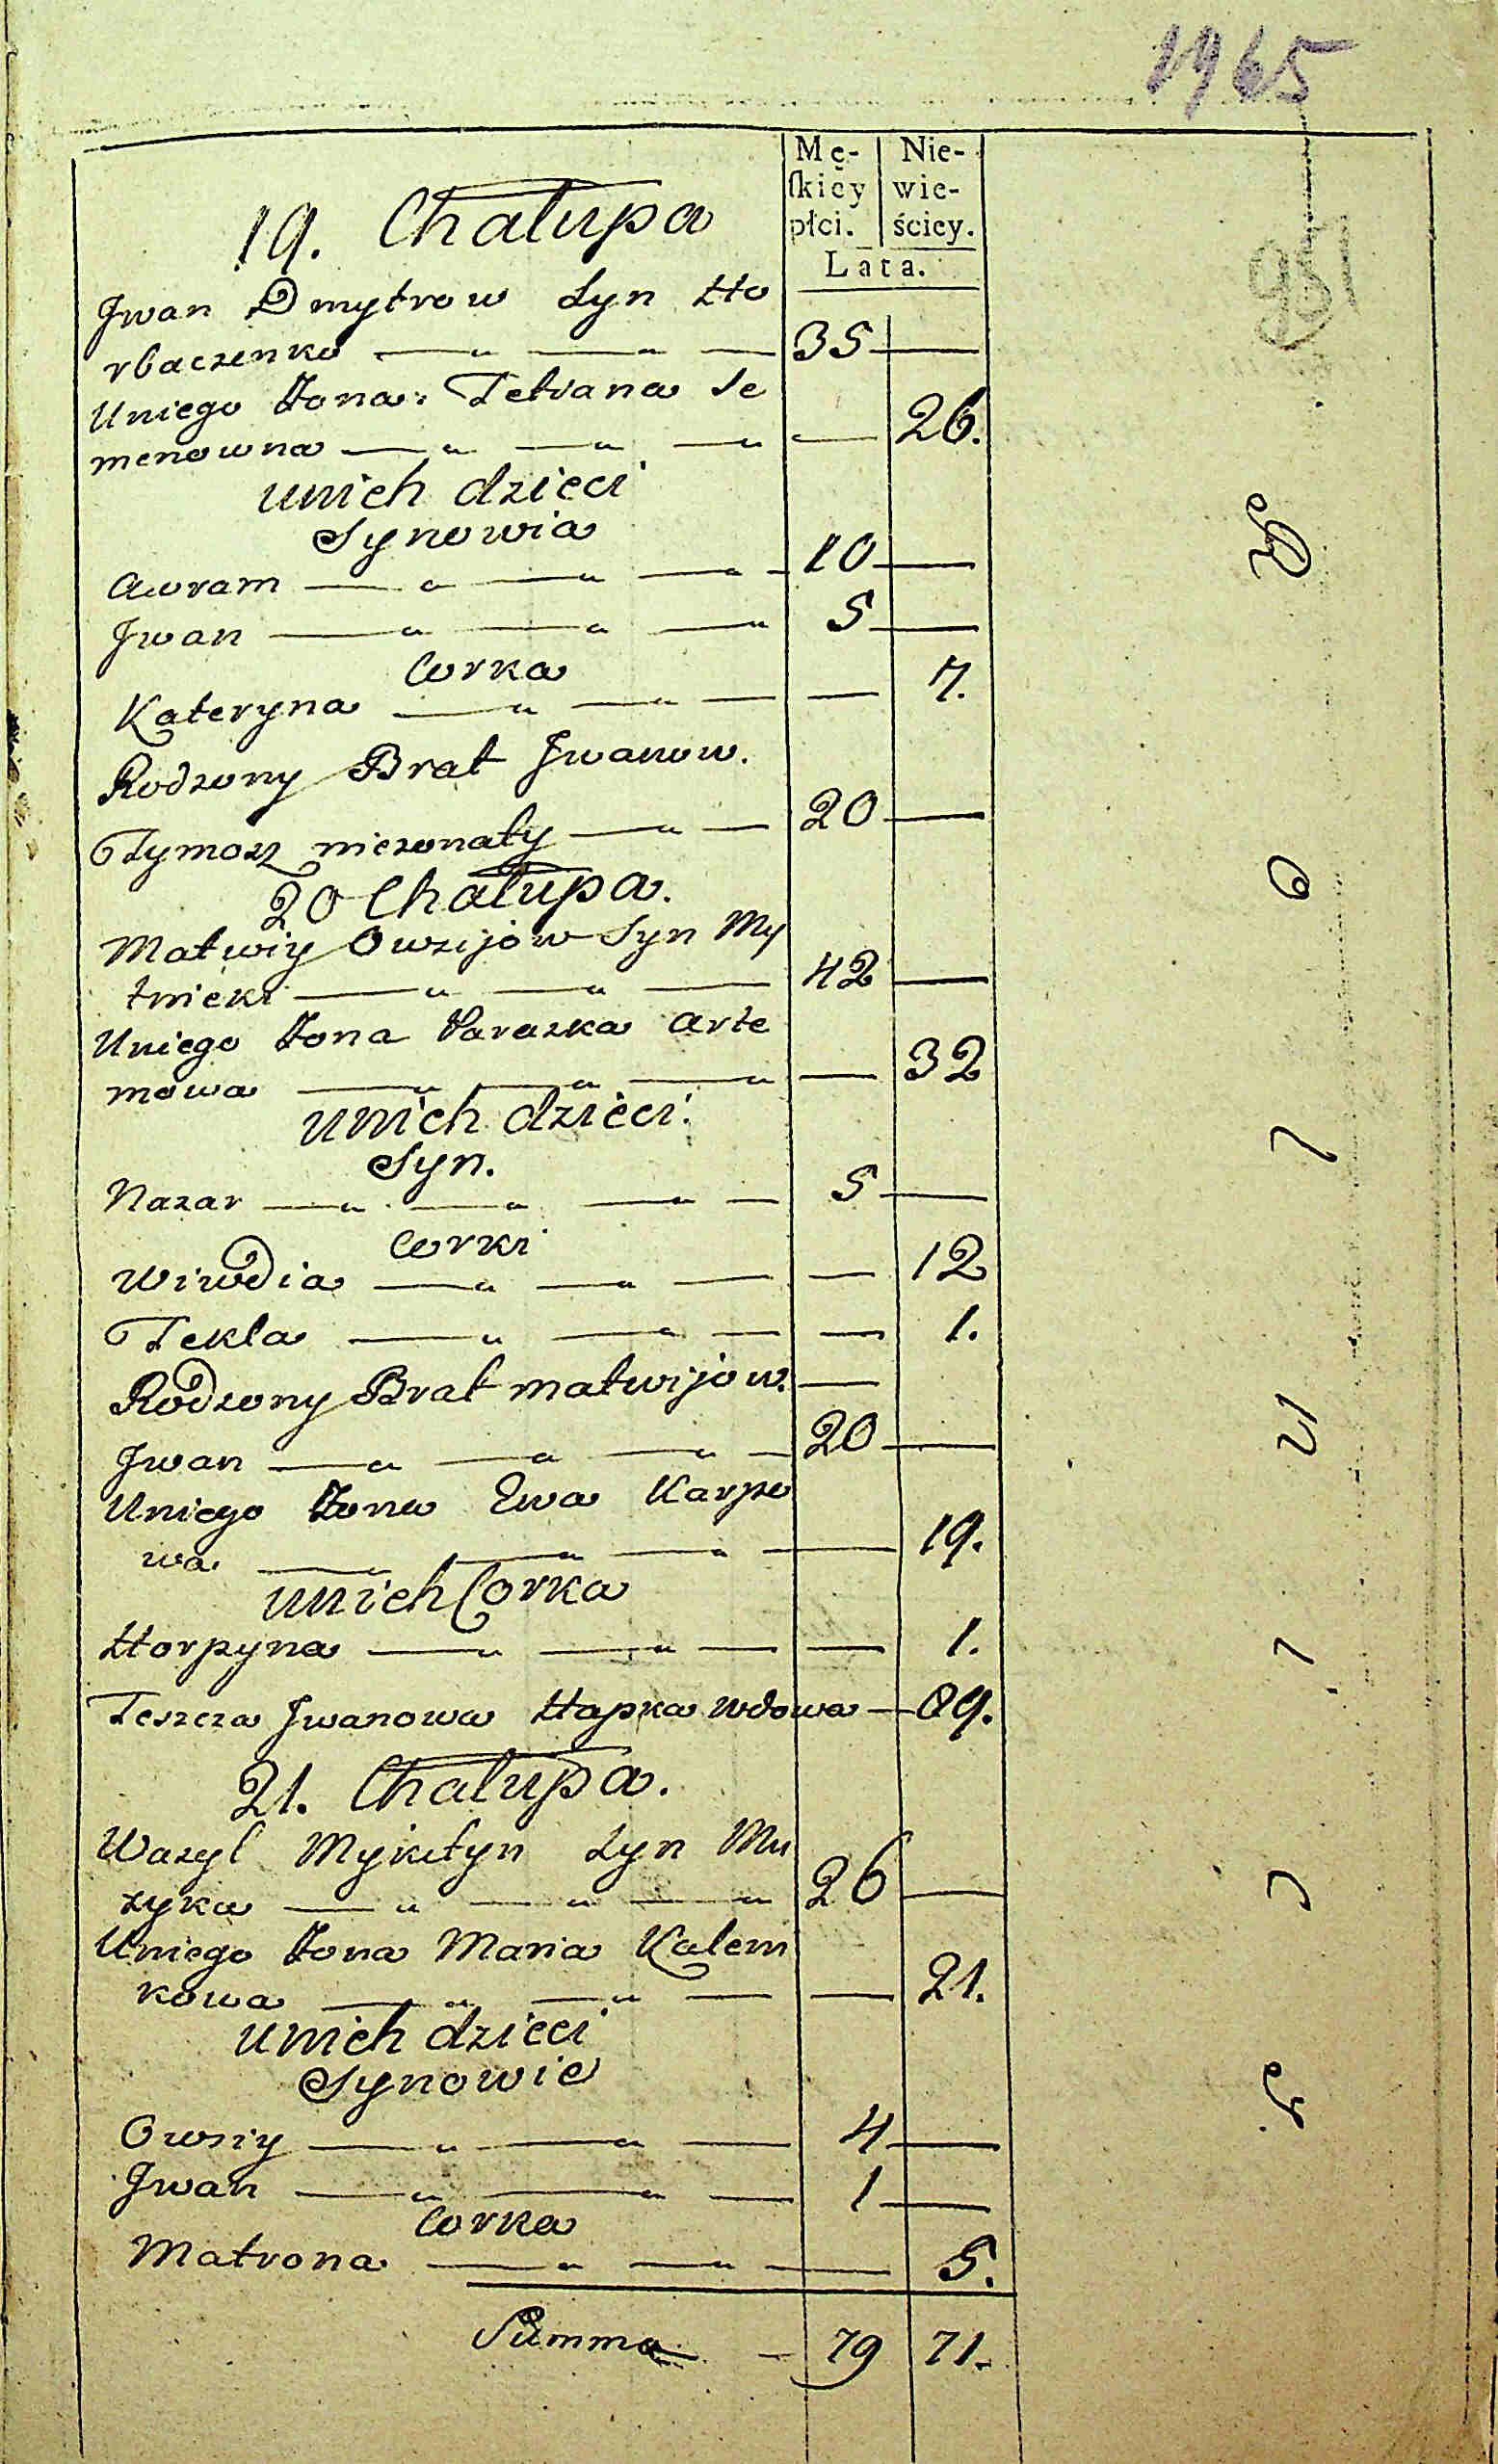 1965
951
Mę-
ſkiey
płci.
Nie-
wie-
ściey.
Lata.
19. Chałupa
Jwan Dmytrow Syn Ho
rbaczenko 35
Uniego Żona Tetiana Se
menowna 26.
unich dzieci
Synowia
Awram 10
Jwan 5
Corka
Kateryna 7.
Rodzony Brat Jwanow.
Tymosz nieżonaty 20
20 Chałupa.
Matwiy Owsijow Syn My
tnicki 42
Uniego Żona Paraska Arte
mowa 32
unich dzieci
Syn.
Nazar 5
Corki
Wiwdia 12
Tekla 1.
Rodzony Brat Matwijow.
Jwan 20
Uniego Żona Ewa Karpo
wa 19.
unich Corka
Horpyna 1.
Teszcza Jwanowa Hapka wdowa 89.
21. Chałupa.
Wasyl Mykityn Syn Mu
zyka 26
Uniego Żona Maria Kalem
kowa 21.
unich dzieci
Synowie
Owsiy 4
Jwan 1
Corka
Matrona 5.
Summa 79 71.